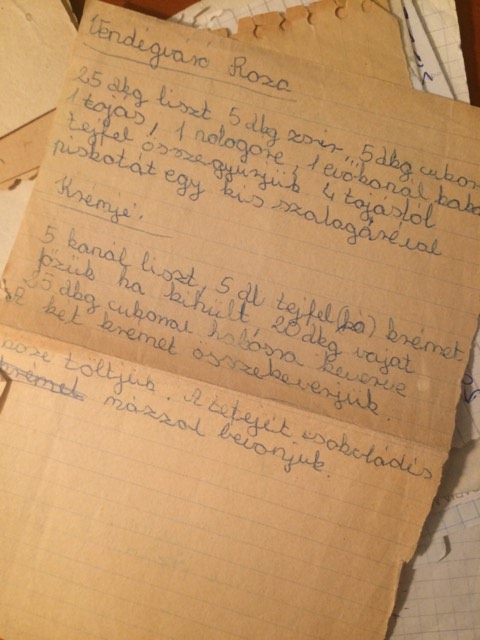 Vendégváró Roza
25 dkg liszt 5 dkg zsir, 5 dkg cukor
1 tojás, 1 nologóre, 1 evőkanál kaka
tejfel összegyúrjuk, 4 tojásból
piskotát egy kis szalagáréval
Krémje.
5 kanál liszt, 5 dl tejfel krémet
főzük ha kihült 20 dkg vajat
25 dkg cukorral habosra keverve
két krémet összekeverjük.
köze töltjük. A tetejét csokoládés
krémet mázzal bevonjuk.